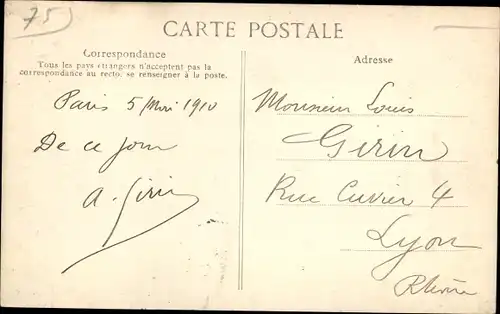 75
CARTE POSTALE
Correspondance
Tous les pays étrangers n'acceptent pas la
correspondance au recto, se renseigner à la poste.
Paris 5 Mai 1910
De ce jour
A. Girin
Adresse
Monsieur Louis
Girin
Rue Cuvier 4
Lyon
Rhône